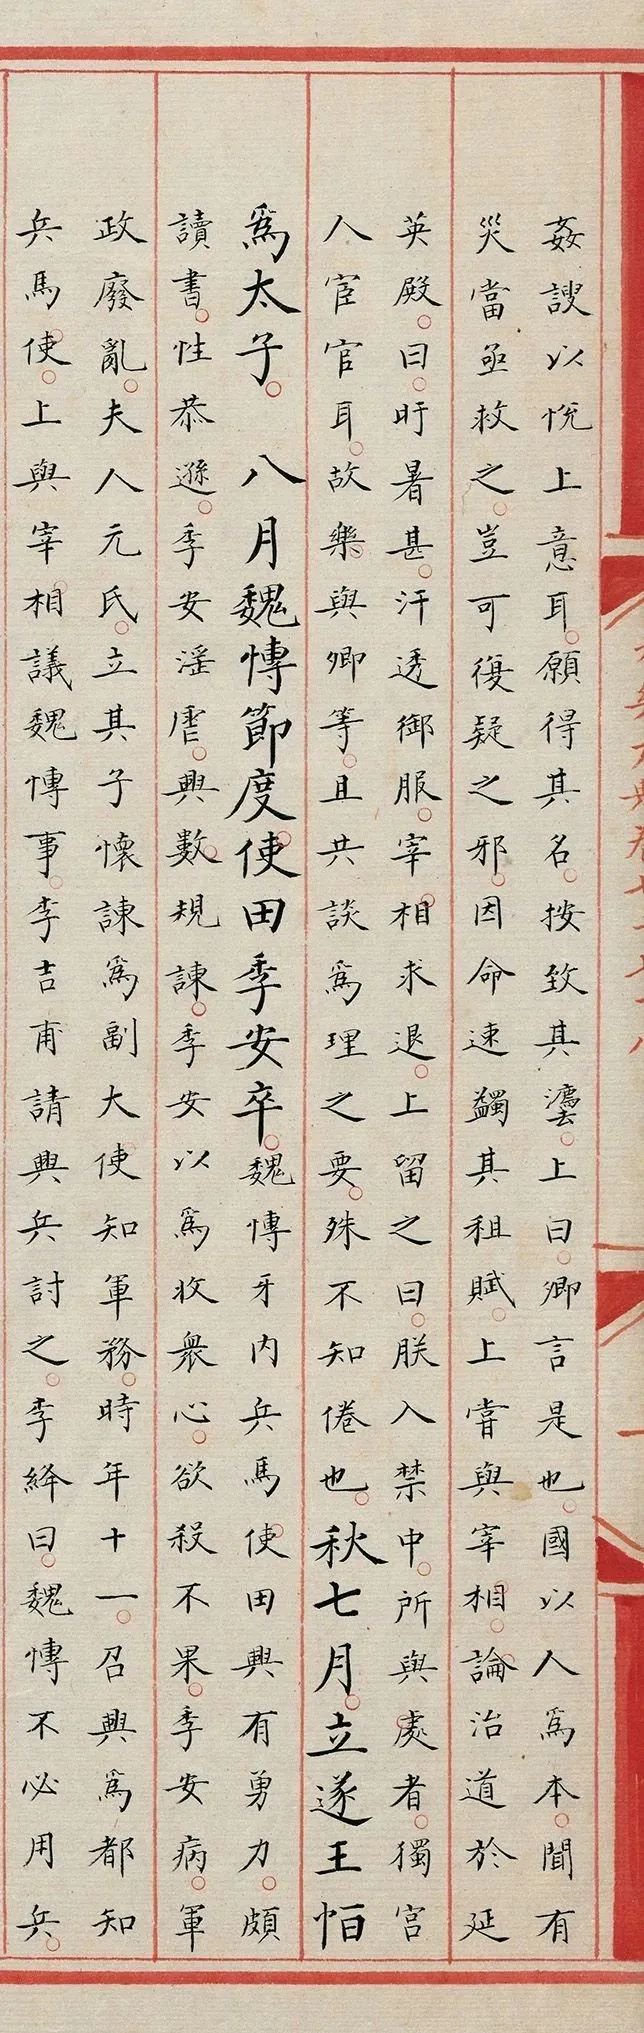 姦諛以悅上意耳。願得其名。按致其灋。上曰。卿言是也。國以人爲本。聞有
災當亟救之。豈可復疑之邪。因命速蠲其租賦。上嘗與宰相。論治道於延
英殿。日旰暑甚。汗透御服。宰相求退。上留之曰。朕入禁中。所與處者。獨宮
人宦官耳。故樂與卿等。且共談爲理之要。殊不知倦也。秋七月。立遂王恒
爲太子。八月魏愽節度使田季安卒。魏愽牙內兵馬使田興有勇力。頗
讀書。性恭遜。季安淫虐。興數規諫。季安以爲收衆心。欲殺不果。季安病。軍
政廢亂。夫人元氏。立其子懷諫爲副大使知軍務。時年十一。召興爲都知
兵馬使。上與宰相議魏愽事。李吉甫請興兵討之。李絳曰。魏愽不必用兵。